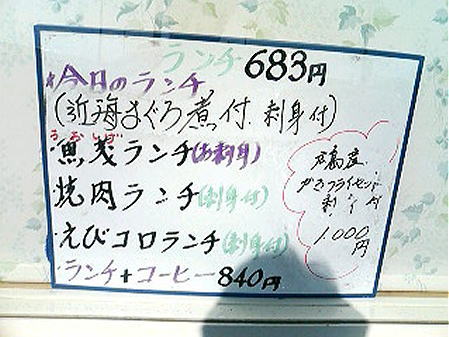 ランチ 683円
今日のランチ
(近海まぐろ煮付、刺身付)
うおしげ
・魚茂ランチ(お刺身)
・焼肉ランチ(刺身付)
・えびコロランチ(刺身付)
・ランチ+コーヒー 840円
産
かきフライ
刺身付
1,000
円